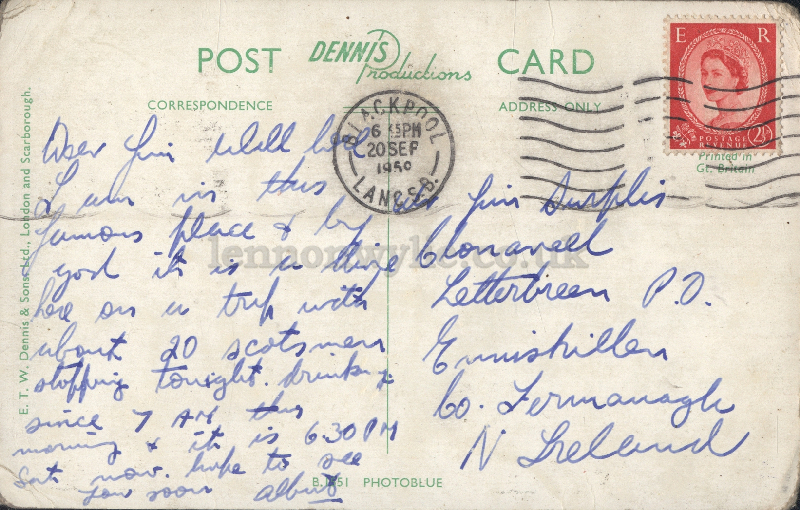 POST DENNIS Productions CARD
CORRESPONDENCE
ADDRESS ONLY
E R
POSTAGE REVENUE
2½
Printed in
Gt. Britain
BLACKPOOL
6 PM
20 SEP
LANCS.
Dear Jim Well here
I am in this
famous place & by
gosh it is a
here on a trip with
about 20 scotsmen
stopping tonight. drinking
since 7 AM this
morning & it is 6.30 PM
Sat now. hope to see
you soon Albert
Jim Surplis
Clonaveel
Letterbreen P.O.
Enniskillen
Co. Fermanagh
N Ireland
E. T. W. Dennis & Sons Ltd., London and Scarborough.
PHOTOBLUE
lennonwylie.co.uk